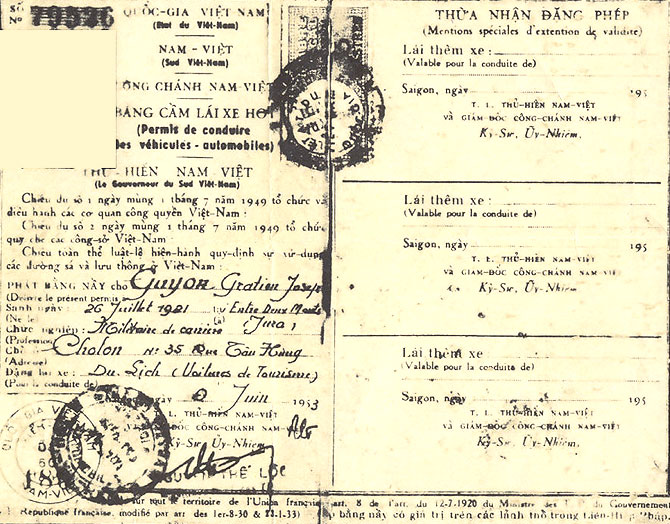 Số
Nº 79526
QUỐC-GIA VIỆT NAM
(Etat du Việt-Nam)
NAM - VIỆT
(Sud Việt-Nam)
CÔNG CHÁNH NAM-VIỆT
BẰNG CẦM LÁI XE HƠI
(Permis de conduire
des véhicules - automobiles)
THỦ - HIẾN NAM VIỆT
(Le Gouverneur du Sud Việt-Nam)
Chiếu dụ số 1 ngày mùng 1 tháng 7 năm 1949 tổ chức và
điều hành các cơ quan công quyền Việt-Nam :
Chiếu dụ số 2 ngày mùng 1 tháng 7 năm 1949 tổ chức
quy chế các công-sở Việt-Nam :
Chiếu toàn thể luật-lệ hiện-hành quy-định sự sử-dụng
các đường sá và lưu thông ở Việt-Nam :
PHÁT BẰNG NẦY cho Guyon Gratien Joseph
(Délivre le présent permis à
Sanh ngày : 26 Juillet 1921 tại Entre Deux Monts
(Né le) (à) Jura)
Chức nghiệp : Militaire de carrière
(Profession
Chỗ ở Cholon Nº 35 Rue Tân Hàng
(Adresse)
Đặng lái xe : Du Lịch (Voitures de Tourisme)
(Pour la conduite de)
2 Juin 1953
T. L. THỦ-HIẾN NAM-VIỆT
CÔNG-CHÁNH NAM-VIỆT
Kỹ-Sư Ủy-Nhiệm
THỪA NHẬN ĐẶNG PHÉP
(Mentions spéciales d'extention de validité)
Lái thêm xe :
(Valable pour la conduite de)
Saigon, ngày 195
T. L. THỦ-HIẾN NAM-VIỆT
VÀ GIÁM-ĐỐC CÔNG-CHÁNH NAM-VIỆT
Kỹ-Sư, Ủy-Nhiệm,
Lái thêm xe :
(Valable pour la conduite de)
Saigon, ngày 195
T. L. THỦ-HIẾN NAM-VIỆT
VÀ GIÁM-ĐỐC CÔNG-CHÁNH NAM-VIỆT
Kỹ-Sư, Ủy-Nhiệm
Lái thêm xe
(Valable pour la conduite de)
Saigon, ngày 195
T. L. THỦ-HIẾN NAM-VIỆT
VÀ GIÁM-ĐỐC CÔNG-CHÁNH NAM-VIỆT
Kỹ-Sư, Ủy-Nhiệm,
sur tout le territoire de l'Union française art. 8 de l'arr. du 12-7.1920 du Ministre des Gouvernement
République française, modifié par arr des 1er-8-30 & 11-1-33) bằng nầy có giá trị trên các lãnh thổ trong Liên-Hiệp Pháp.